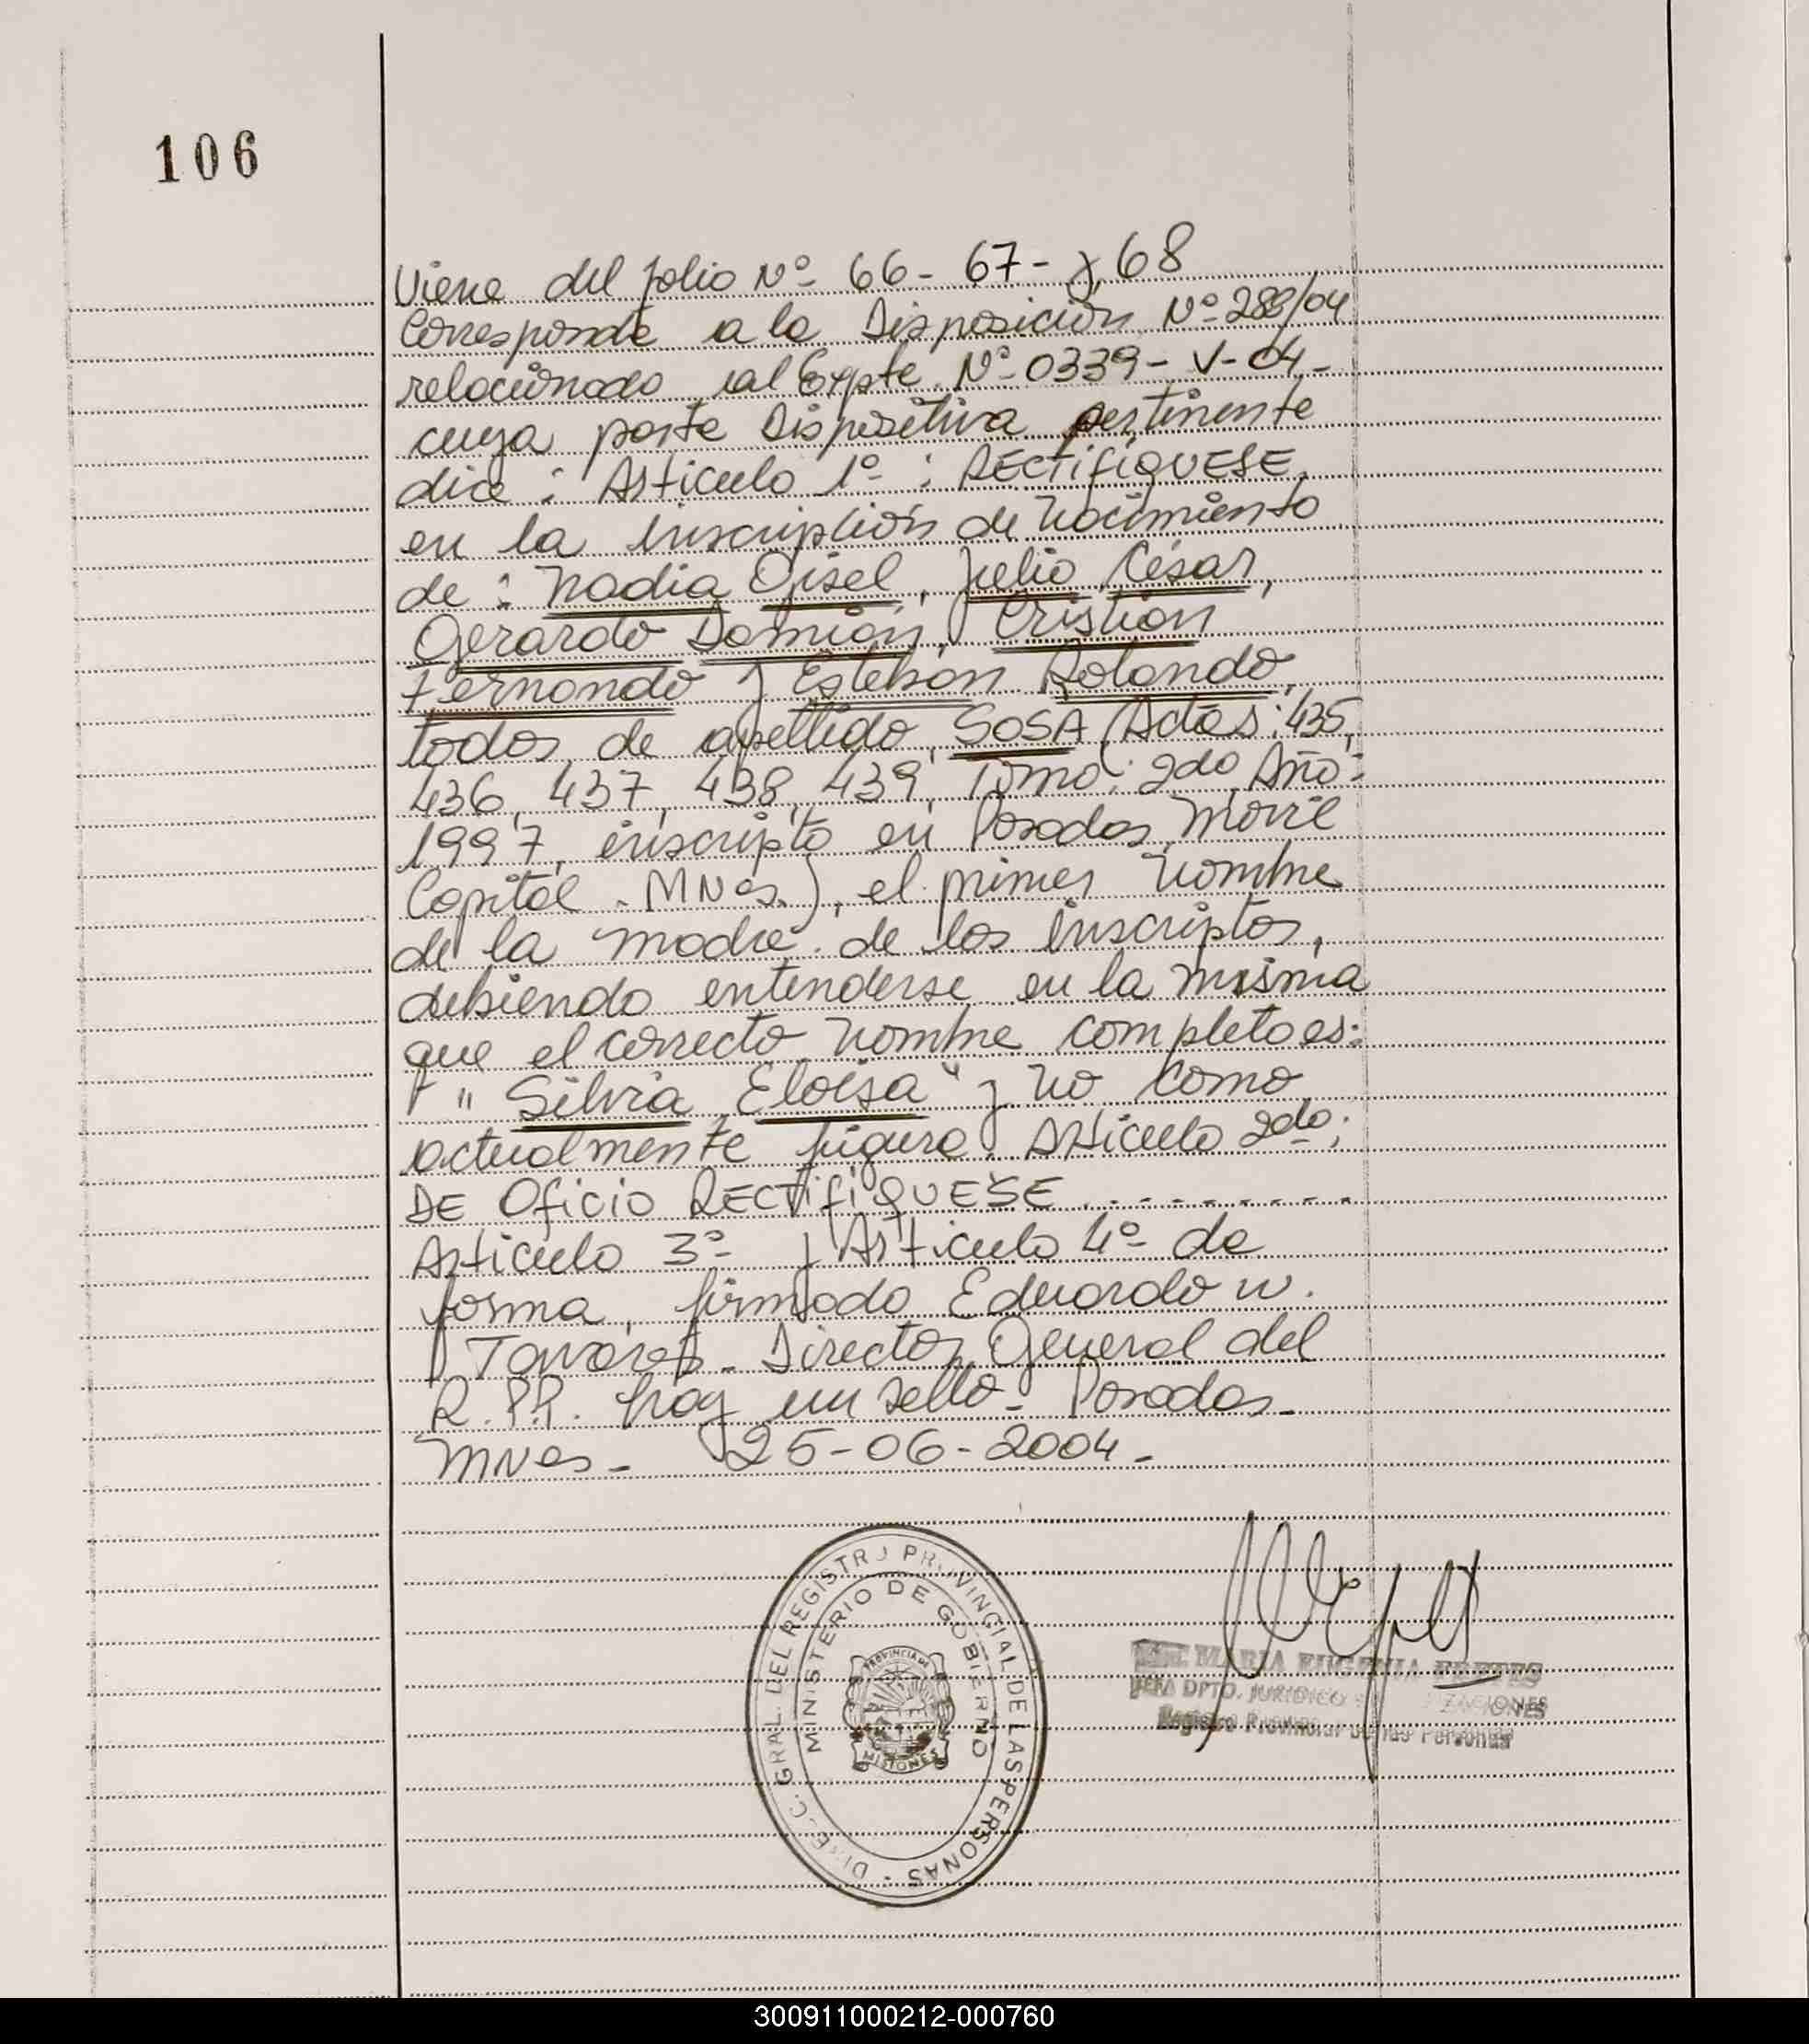 106
Viene del folio Nº 66- 67- y 68
Corresponde a la Disposición Nº 288/04
relacionado al Expte Nº 0339- V-04-
cuya parte Dispositiva pertinente
dice: Articulo 1º: RECTIFIQUESE
en la inscripción de nacimiento
de: Nadia Gisel, Julio César,
Gerardo Damián, Cristian
Fernando y Esteban Rolando,
todos de apellido SOSA (Actas: 435,
436, 437, 438, 439, Tomo: 2do Año:
1997, inscripto en Posadas Movil
Capital - MNes.), el primer nombre
de la madre de los inscriptos,
debiendo entenderse en la misma
que el correcto nombre completo es:
" Silvia Eloisa" y no como
actualmente figura. Articulo 2do:
DE Oficio RECTIFIQUESE ..........
Articulo 3º y Articulo 4º de
forma, firmado Eduardo W.
Tavares - Director General del
R.P.P. hay un sello - Posadas -
MNes - 25-06-2004 -
DIREC. GRAL. DEL REGISTRO PROVINCIAL DE LAS PERSONAS
MINISTERIO DE GOBIERNO
PROVINCIA DE
MISIONES
MARIA EUGENIA
JEFA DPTO. JURIDICO
Registro Provincial de las Personas
300911000212-000760